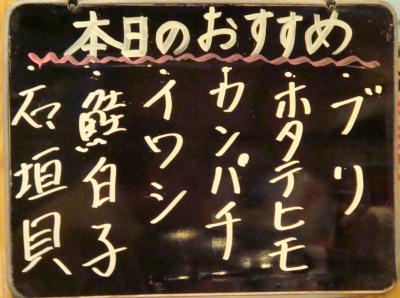 本日のおすすめ
・ブリ
・ホタテヒモ
・カンパチ
・イワシ
・鮭白子
・石垣貝